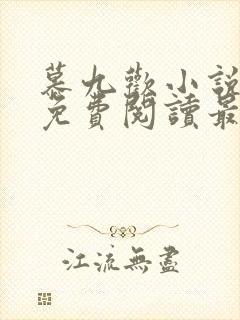 慕九歡小說
免費閱讀最
江流無盡